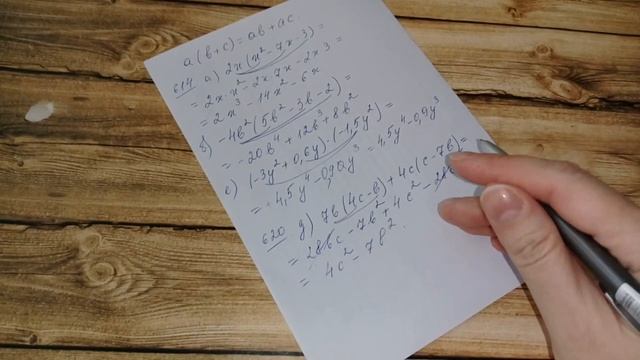 a(b+c) = ab + ac.
614 а) 2x(x²-7x-3) =
= 2x·x²-2x·7x-2x·3 =
= 2x³-14x²-6x
б) -4b²(5b²-3b-2) =
= -20b⁴+12b³+8b²
е) (-3y²+0,6y)·(-1,5y²) =
= 4,5y⁴-0,90y³ = 4,5y⁴-0,9y³
620 д) 7b(4c-b)+4c(c-7b) =
= 28bc-7b²+4c²-28bc
= 4c²-7b².